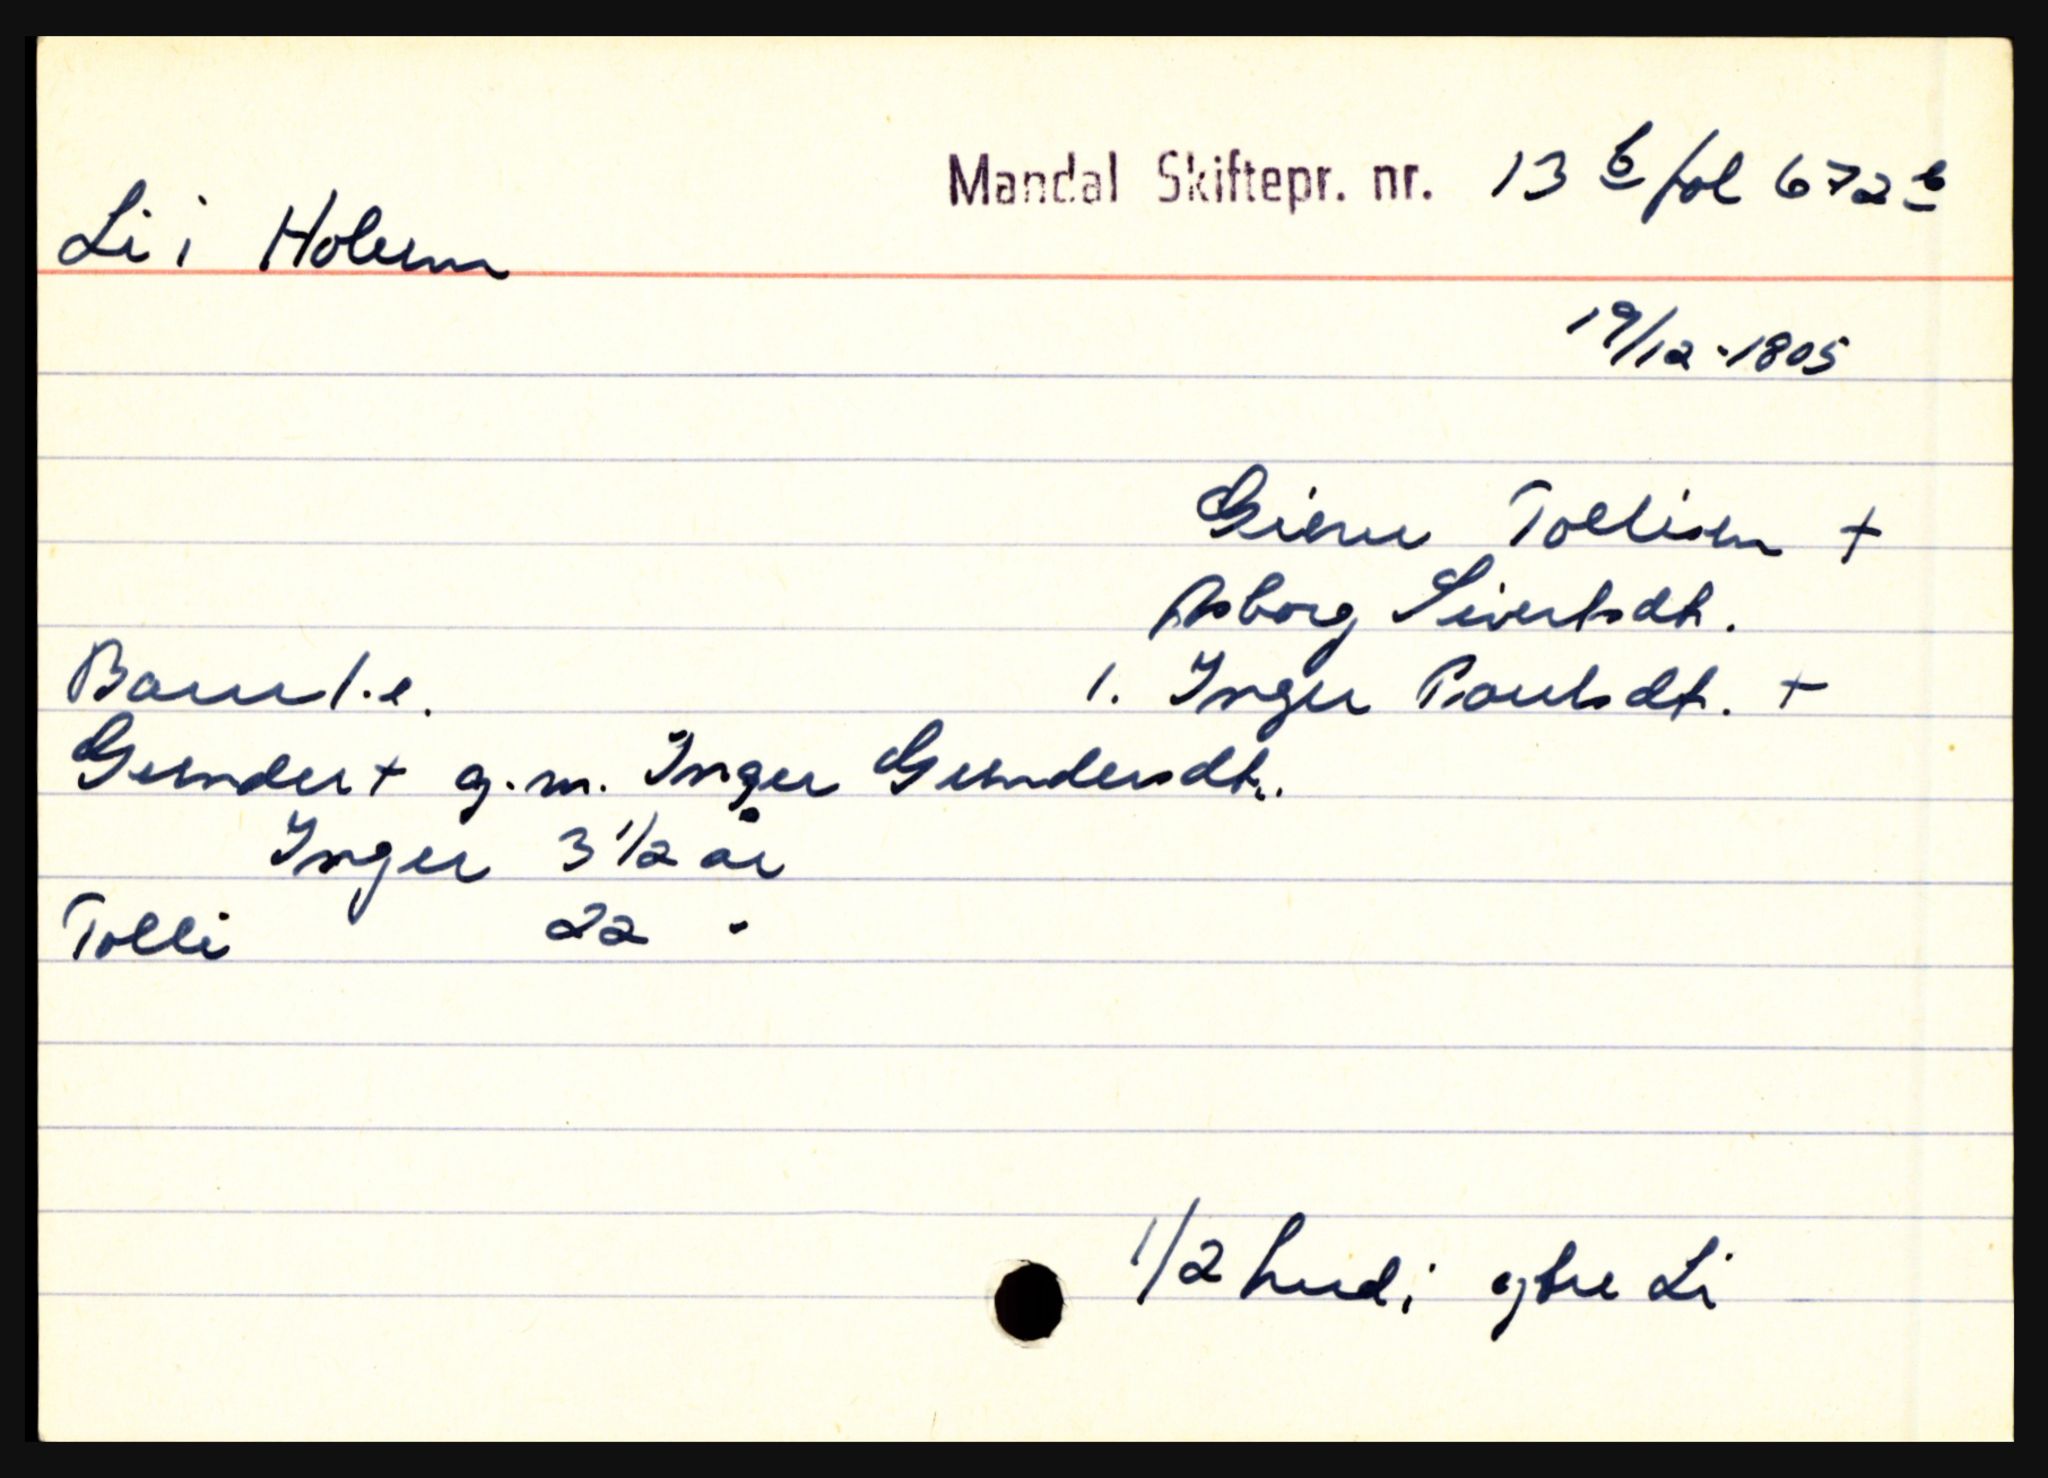 Mandal Skiftepr. nr. 13 b fol 672 b
Li i Holum
19/12-1805
Gieru Tollisen +
Asborg Sivertsdt.
Barn 1.e. 1. Inger Poulsdt. +
Gunder + g.m. Inger Gundersdt.
Inger 3 1/2 år
Tolli 22 "
1/2 hud i ytre Li